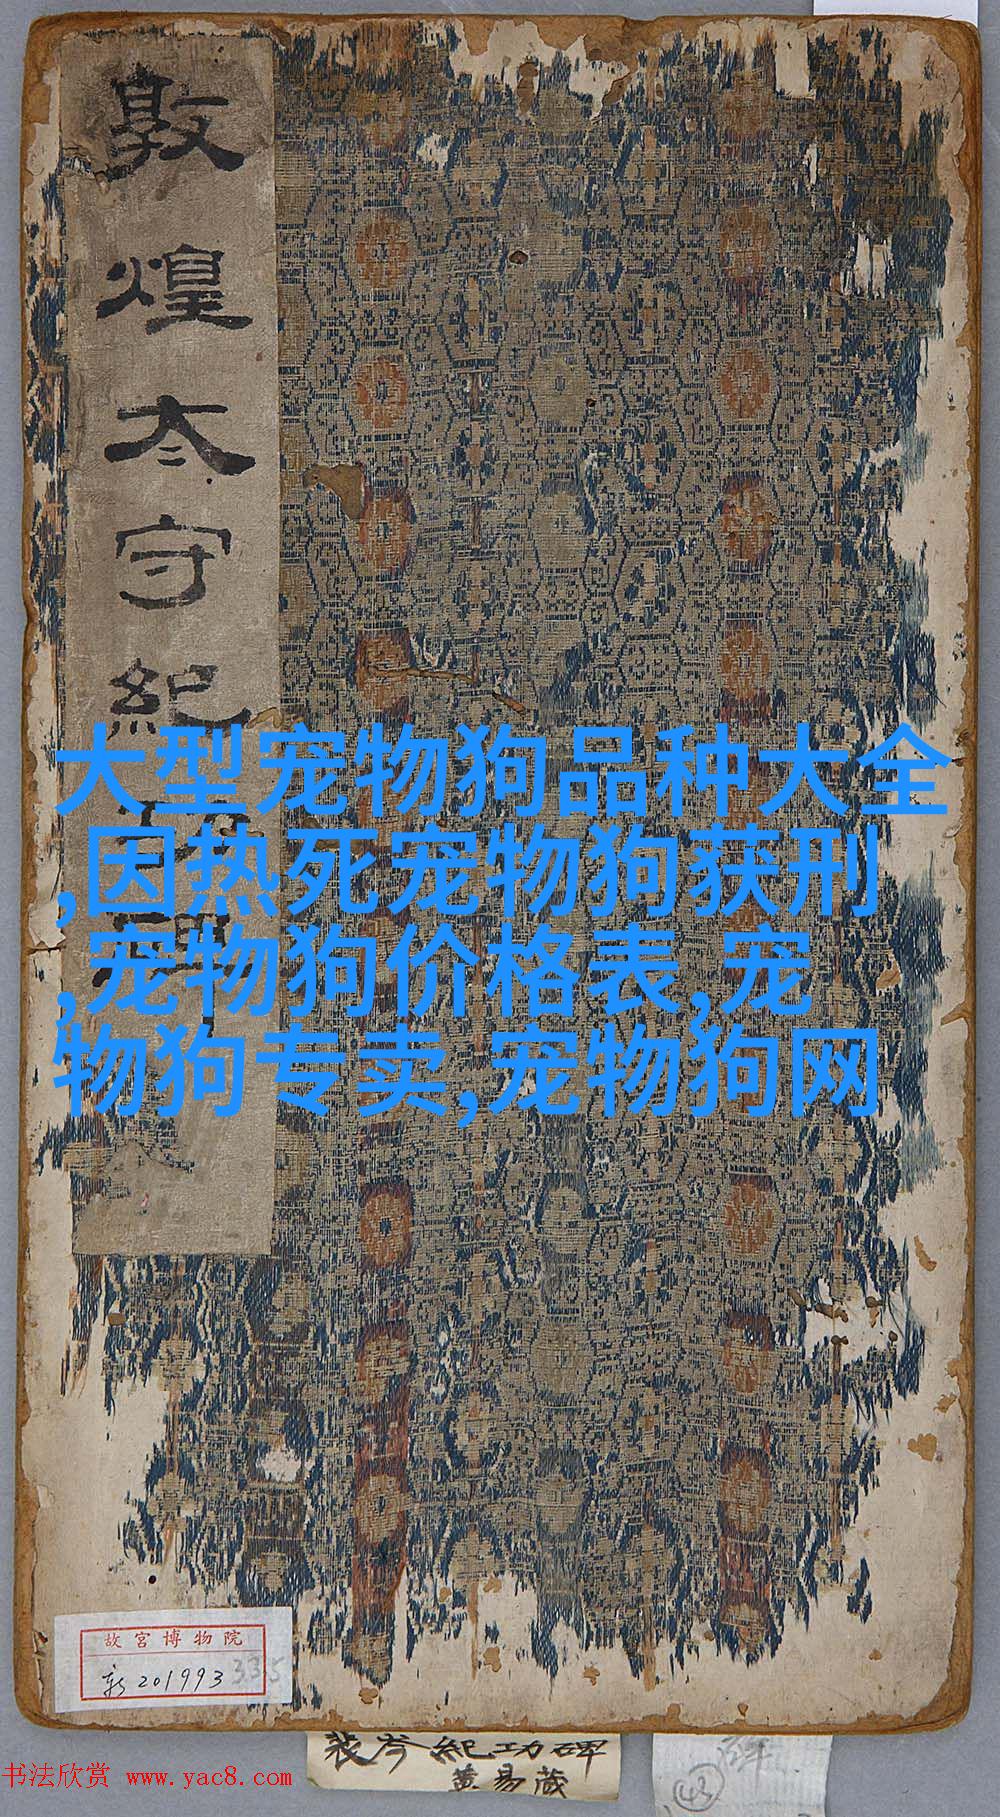 敦煌太守紀
大型宠物狗品种大全
,因热死宠物狗获刑
,宠物狗价格表,宠
物狗专卖,宠物狗网
故宫博物院
新201993
335
裴岑紀功碑
黄易藏
43
书法欣赏 www.yac8.com